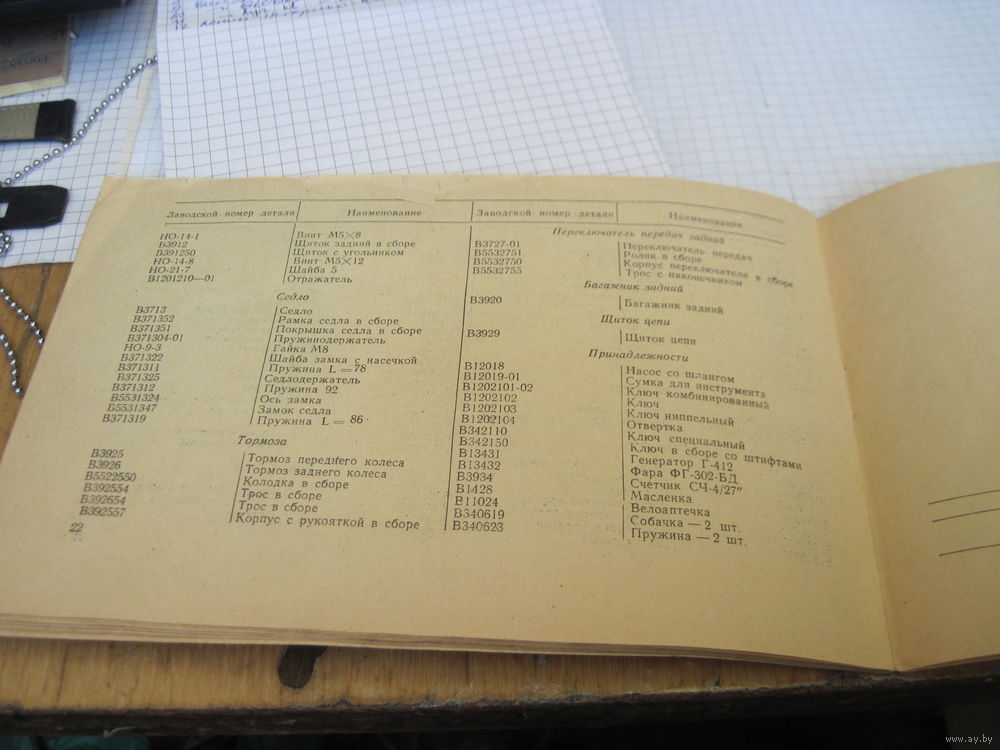 Заводской номер детали Наименование
НО-14-1 Винт М5×8
В3912 Щиток задний в сборе
В391250 Щиток с угольником
НО-14-8 Винт М5×12
НО-21-7 Шайба 5
В1201210—01 Отражатель
Седло
В3713 Седло
В371352 Рамка седла в сборе
В371351 Покрышка седла в сборе
В371304-01 Пружинодержатель
НО-9-3 Гайка М8
В371322 Шайба замка с насечкой
В371311 Пружина L=78
В371325 Седлодержатель
В371312 Пружина 92
В5531324 Ось замка
В5531347 Замок седла
В371319 Пружина L = 86
Тормоза
В3925 Тормоз переднего колеса
В3926 Тормоз заднего колеса
В5522550 Колодка в сборе
В392554 Трос в сборе
В392654 Трос в сборе
В392557 Корпус с рукояткой в сборе
22
Заводской номер детали Наименование
Переключатель передач задний
В3727-01 Переключатель передач
В5532751 Ролик в сборе
В5532750 Корпус переключателя в сборе
В5532755 Трос с наконечником
Багажник задний
В3920 Багажник задний
Щиток цепи
В3929 Щиток цепи
Принадлежности
В12018 Насос со шлангом
В12019-01 Сумка для инструмента
В1202101-02 Ключ комбинированный
В1202102 Ключ
В1202103 Ключ ниппельный
В1202104 Отвертка
В342110 Ключ специальный
В342150 Ключ в сборе со штифтами
В13431 Генератор Г-412
В13432 Фара ФГ-302-БД
В3934 Счетчик СЧ-4/27″
В1428 Масленка
В11024 Велоаптечка
В340619 Собачка — 2 шт.
В340623 Пружина — 2 шт.
www.ay.by